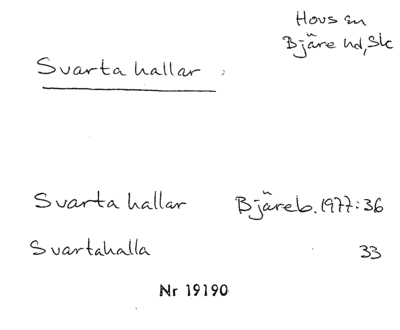 Hovs sn
Bjäre hd, Sk
Svarta hallar
Svarta hallar Bjäreb. 1977:36
Svartahalla 33
Nr 19190